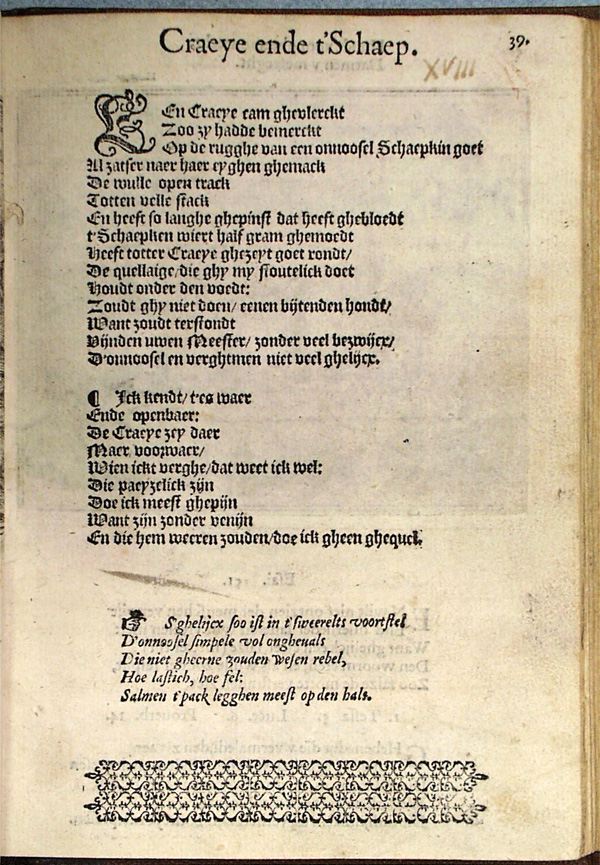 Craeye ende t'Schaep.
39.
XVIII
EEn Craeye cam ghevlerckt
Zoo zy hadde bemerckt
Op de rugghe van een onnoosel Schaepkin goet
Al zatser naer haer eyghen ghemack
De wulle open track
Totten velle stack
En heeft so langhe ghepinst dat heeft ghebloedt
t'Schaepken wiert half gram ghemoedt
Heeft totter Craeye ghezeyt goet rondt/
De quellaige/die ghy my stoutelick doet
Houdt onder den voedt:
Zoudt ghy niet doen/ eenen bijtenden hondt/
Want zoudt terstondt
Vijnden uwen Meester/ zonder veel bezwijcx/
D'onnoosel en verghtmen niet veel ghelijcx.
¶ Ick kendt/ t'es waer
Ende openbaer:
De Craeye zey daer
Maer voorwaer/
Wien ickt verghe/dat weet ick wel:
Die paeyzelick zijn
Doe ick meest ghepijn
Want zijn zonder venijn
En die hem weeren zouden/doe ick gheen ghequel.
☞ S'ghelijcx soo ist in t'sweerelts voortstel
D'onnoosel simpele vol ongheuals
Die niet gheerne zouden wesen rebel,
Hoe lastich, hoe fel:
Salmen t'pack legghen meest op den hals.